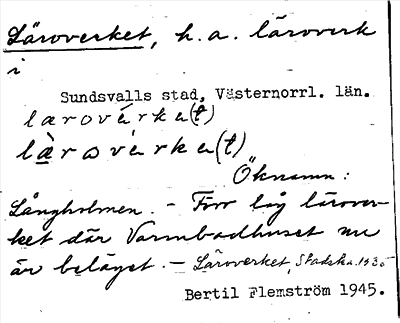 Läroverket, h.a. läroverk
i
Sundsvalls stad, Västernorrl. län.
lærové̱rka(t)
læ̀rové̱rka(t)
Öknamn:
Långholmen. - Förr låg lärover-
ket där Varmbadhuset nu
är beläget. - Läroverket, Stadska. 1935
Bertil Flemström 1945.